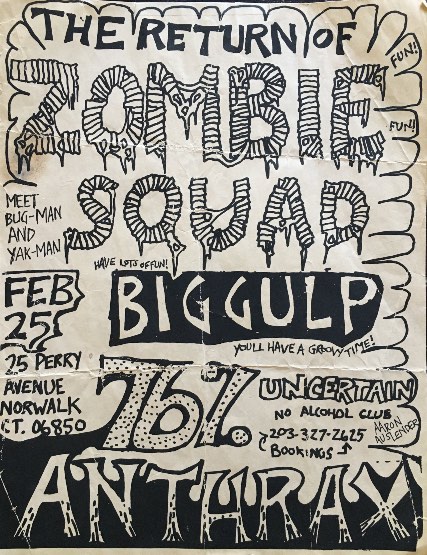 THE RETURN OF
FUN!
ZOMBIE
FUN!
SQUAD
MEET
BUG-MAN
AND
YAK-MAN
HAVE LOTS OF FUN!
FEB
25
BIG GULP
YOU'LL HAVE A GROOVY TIME!
25 PERRY
AVENUE
NORWALK
CT. 06850
76%
UNCERTAIN
NO ALCOHOL CLUB
203-327-2625
BOOKINGS
AARON
AUSLENDER
ANTHRAX